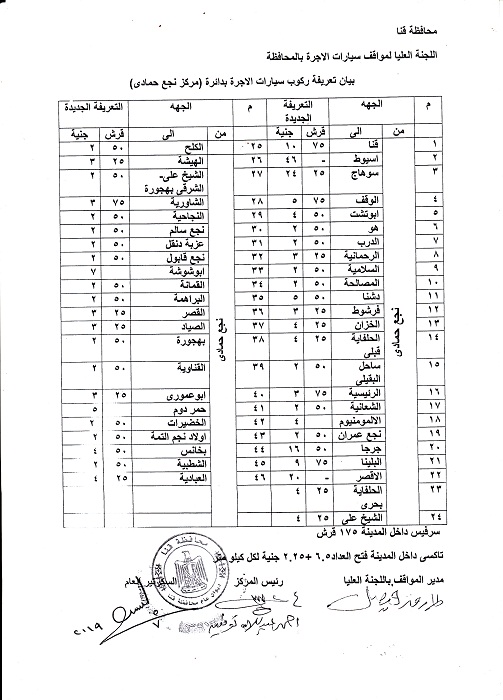 محافظة قنا
اللجنة العليا لمواقف سيارات الاجرة بالمحافظة
بيان تعريفة ركوب سيارات الاجرة بدائرة (مركز نجع حمادى)
م الجهه التعريفة الجديدة م الجهه التعريفة الجديدة
من الى قرش جنية من الى قرش جنية
نجع حمادى نجع حمادى
١ قنا ٧٥ ١٠ ٢٥ الكلح ٥٠ ٢
٢ اسيوط - ٤٦ ٢٦ الهيشة ٢٥ ٣
٣ سوهاج ٢٥ ٢٤ ٢٧ الشيخ على- ٥٠ ٢
الشرقى بهجورة
٤ الوقف ٧٥ ٥ ٢٨ الشاورية ٧٥ ٣
٥ ابوتشت ٥٠ ٤ ٢٩ النجاحية ٥٠ ٢
٦ هو ٥٠ ٢ ٣٠ نجع سالم ٥٠ ٢
٧ الدرب ٥٠ ٢ ٣١ عزبة دنقل ٥٠ ٢
٨ الرحمانية ٢٥ ٣ ٣٢ نجع قابول ٥٠ ٢
٩ السلامية ٥٠ ٢ ٣٣ ابوشوشة ٧
١٠ المصالحة ٥٠ ٢ ٣٤ القمانة ٥٠ ٢
١١ دشنا ٥٠ ٥ ٣٥ البراهمة ٥٠ ٢
١٢ فرشوط ٢٥ ٣ ٣٦ القصر ٢٥ ٣
١٣ الخزان ٢٥ ٤ ٣٧ الصياد ٢٥ ٣
١٤ الحلفاية ٢٥ ٤ ٣٨ بهجورة ٥٠ ٢
قبلى
١٥ ساحل ٥٠ ٢ ٣٩ القناوية ٥٠ ٢
البقيلى
١٦ الرئيسية ٧٥ ٣ ٤٠ ابوعمورى ٢٥ ٣
١٧ الشعانية ٥٠ ٢ ٤١ حمر دوم ٥
١٨ الالومنيوم ٤ ٤٢ الخضيرات ٥٠ ٢
١٩ نجع عمران ٥٠ ٢ ٤٣ اولاد نجم التمة ٥٠ ٢
٢٠ جرجا ٥٠ ١٦ ٤٤ بخانس ٥٠ ٤
٢١ البلينا ٧٥ ٩ ٤٥ الشطبية ٥٠ ٢
٢٢ الاقصر - ٢٠ ٤٦ العبادية ٢٥ ٤
٢٣ الحلفاية ٢٥ ٤
بحرى
٢٤ الشيخ على ٢٥ ٤
سرفيس داخل المدينة ١٧٥ قرش
تاكسى داخل المدينة فتح العداد٦.٥ +٢.٢٥ جنية لكل كيلو متر
مدير المواقف باللجنة العليا رئيس المركز السكرتير العام
محافظة قنا
٢٠١٩